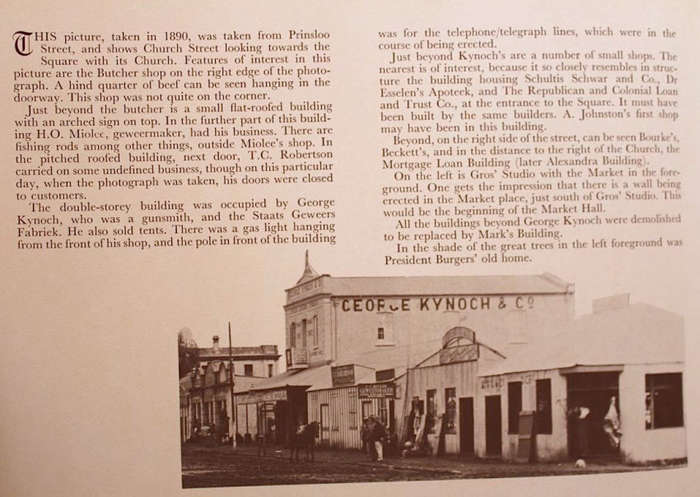 THIS picture, taken in 1890, was taken from Prinsloo
Street, and shows Church Street looking towards the
Square with its Church. Features of interest in this
picture are the Butcher shop on the right edge of the photo-
graph. A hind quarter of beef can be seen hanging in the
doorway. This shop was not quite on the corner.
Just beyond the butcher is a small flat-roofed building
with an arched sign on top. In the further part of this build-
ing H.O. Miolee, geweermaker, had his business. There are
fishing rods among other things, outside Miolee's shop. In
the pitched roofed building, next door, T.C. Robertson
carried on some undefined business, though on this particular
day, when the photograph was taken, his doors were closed
to customers.
The double-storey building was occupied by George
Kynoch, who was a gunsmith, and the Staats Geweers
Fabriek. He also sold tents. There was a gas light hanging
from the front of his shop, and the pole in front of the building
was for the telephone/telegraph lines, which were in the
course of being erected.
Just beyond Kynoch's are a number of small shops. The
nearest is of interest, because it so closely resembles in struc-
ture the building housing Schultis Schwar and Co., Dr
Esselen's Apoteek, and The Republican and Colonial Loan
and Trust Co., at the entrance to the Square. It must have
been built by the same builders. A. Johnston's first shop
may have been in this building.
Beyond, on the right side of the street, can be seen Bourke's,
Beckett's, and in the distance to the right of the Church, the
Mortgage Loan Building (later Alexandra Building).
On the left is Gros' Studio with the Market in the fore-
ground. One gets the impression that there is a wall being
erected in the Market place, just south of Gros' Studio. This
would be the beginning of the Market Hall.
All the buildings beyond George Kynoch were demolished
to be replaced by Mark's Building.
In the shade of the great trees in the left foreground was
President Burgers' old home.
GEORGE KYNOCH & CO